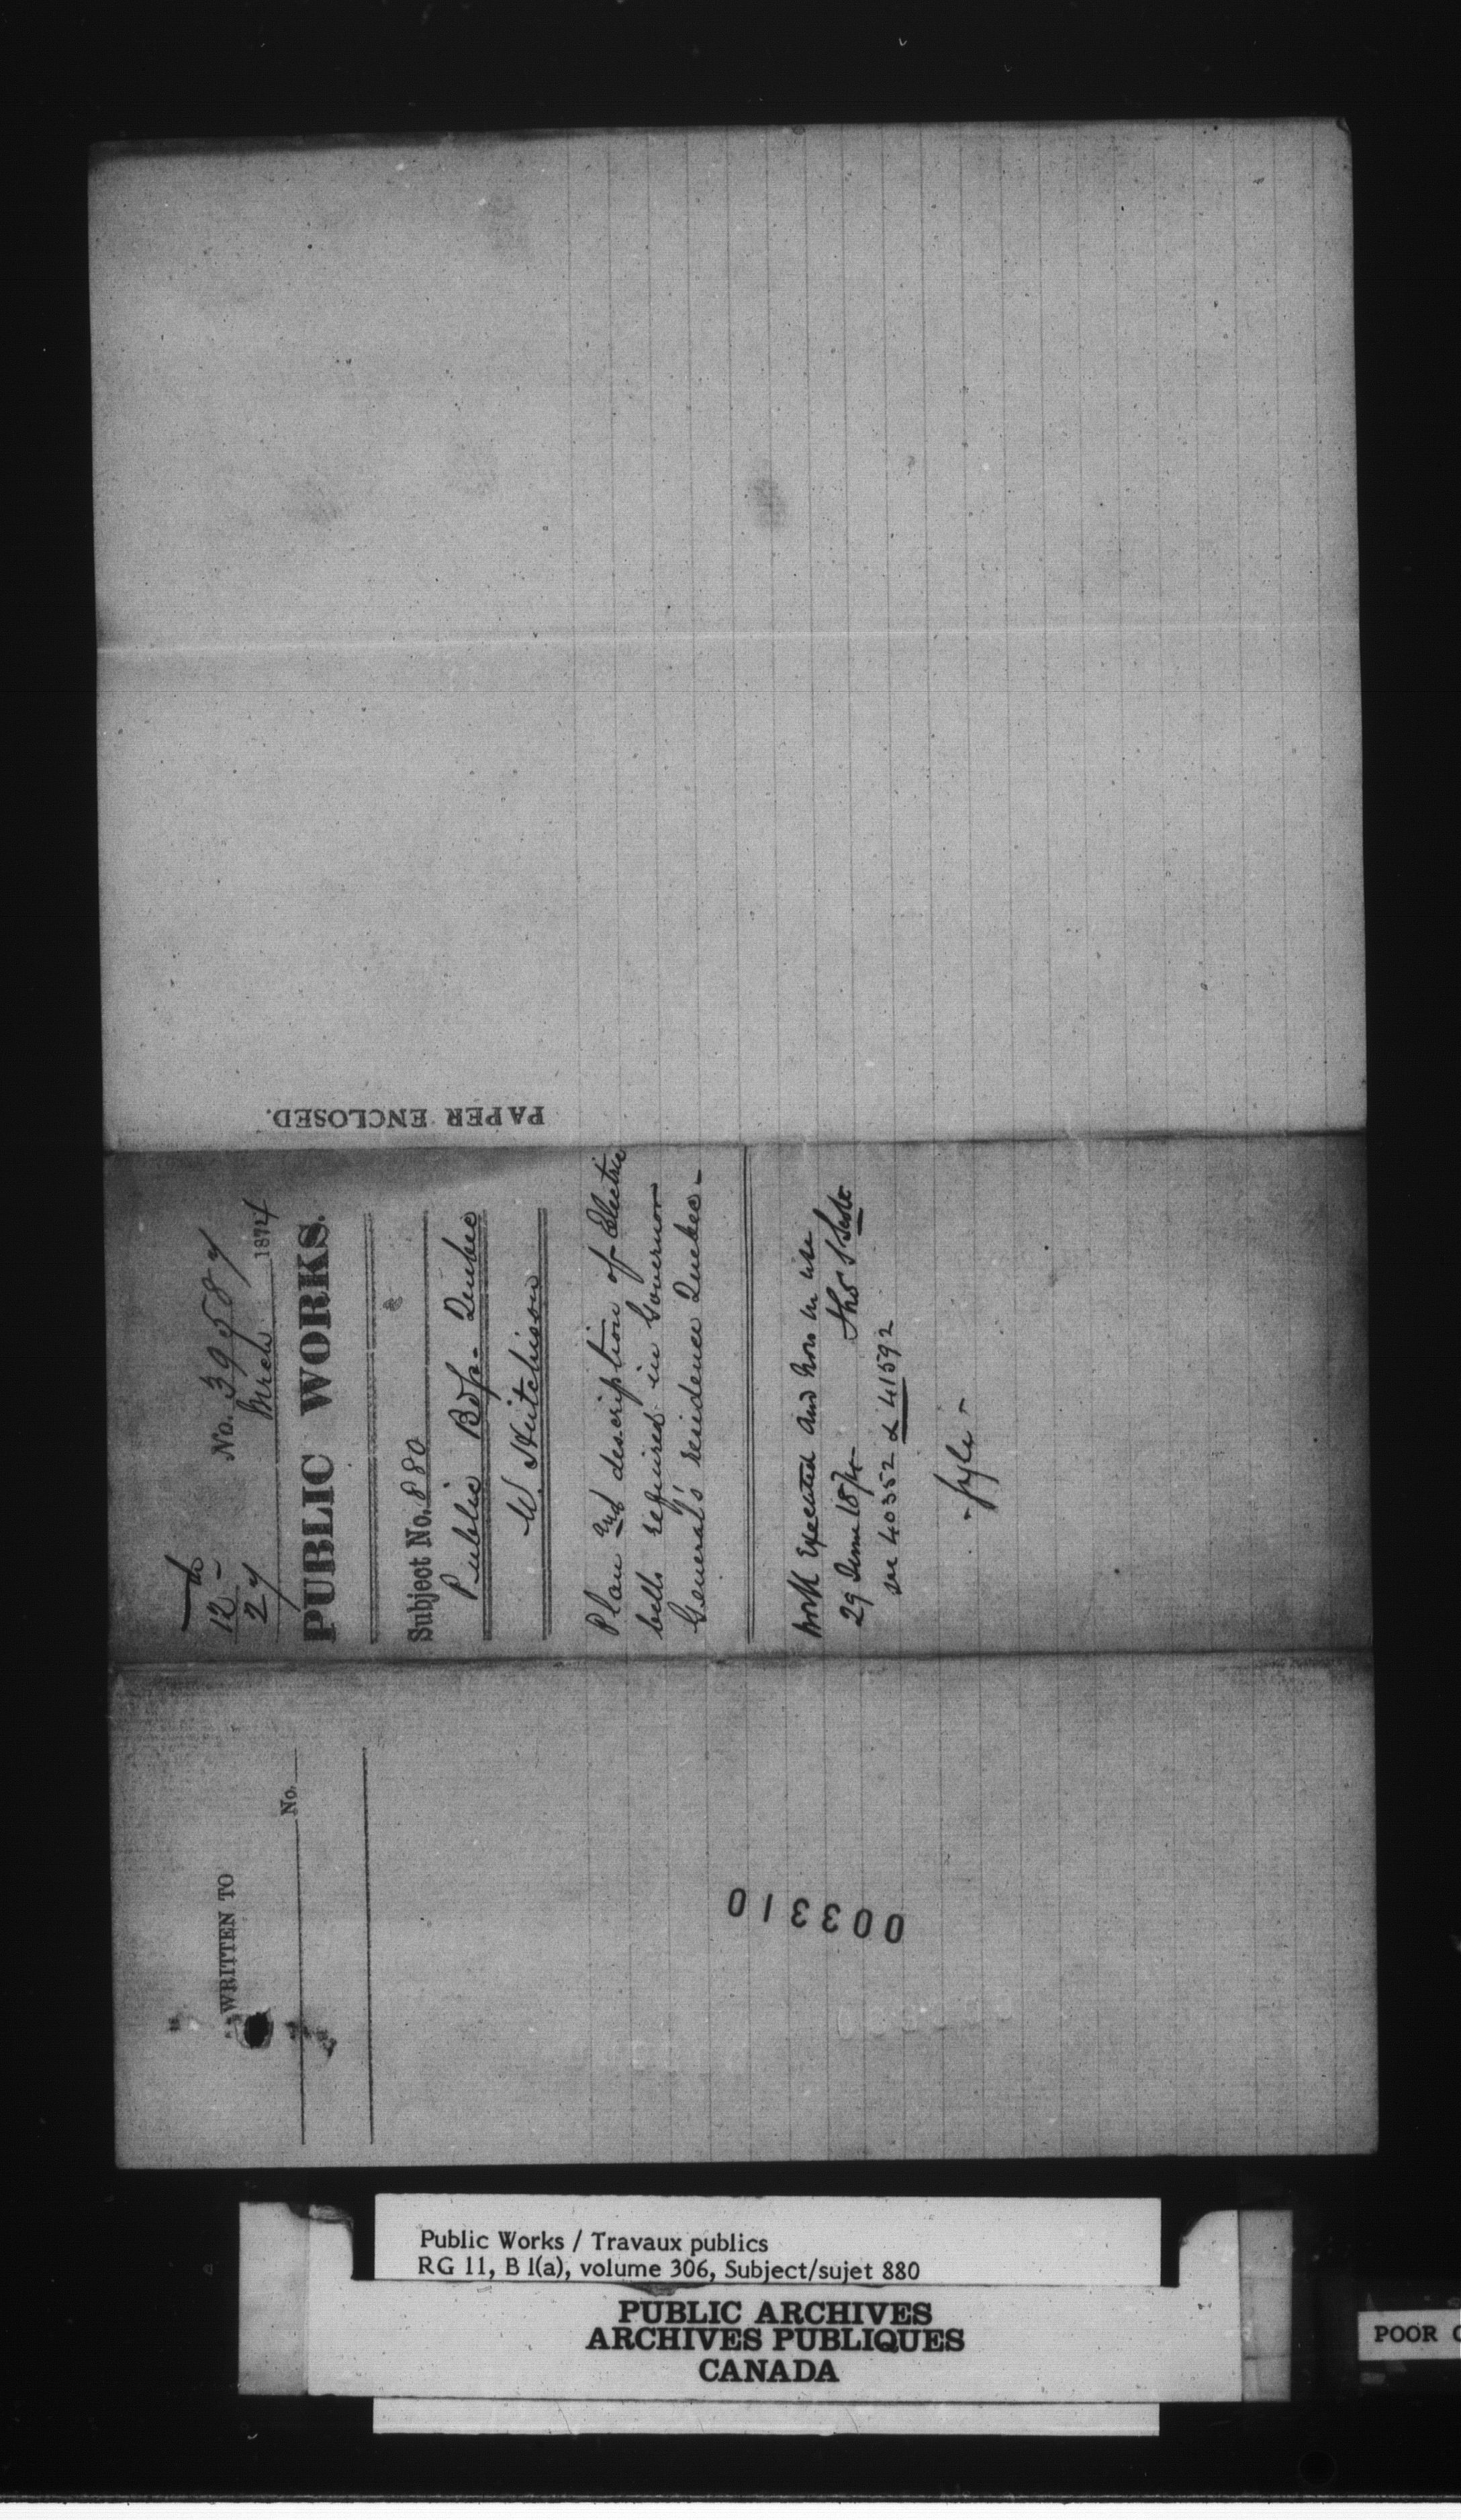 PAPER ENCLOSED.
12
27
No. 39587
March 1874
PUBLIC WORKS.
Subject No. 880
Public Bdgs - Quebec
W. Hutchison
Plan and description of Electric
bells required in Governor
General's residence Quebec -
Work Executed and now in use
29 June 1874
see 40352 & 41592
- fyle -
WRITTEN TO
No.
003310
Public Works / Travaux publics
RG 11, B 1(a), volume 306, Subject/sujet 880
PUBLIC ARCHIVES
ARCHIVES PUBLIQUES
CANADA
POOR